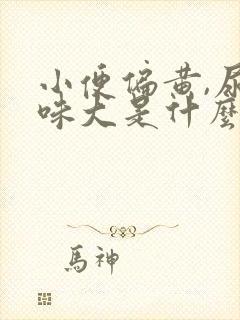 小便偏黄,尿
味大是什麼
馬神